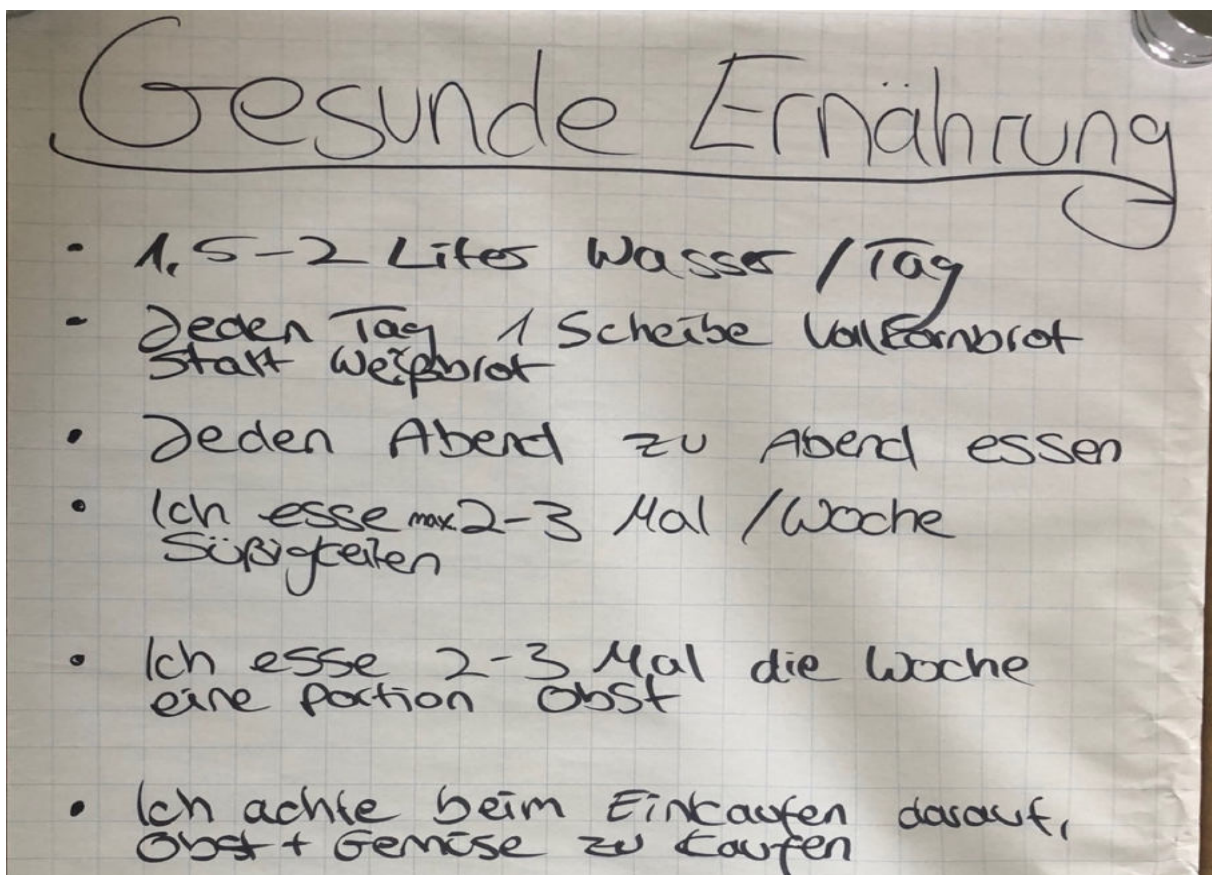 Gesunde Ernährung
• 1,5-2 Liter Wasser / Tag
• Jeden Tag 1 Scheibe Vollkornbrot
statt Weißbrot
• Jeden Abend zu Abend essen
• Ich esse max. 2-3 Mal / Woche
Süßigkeiten
• Ich esse 2-3 Mal die Woche
eine Portion Obst
• Ich achte beim Einkaufen darauf,
Obst + Gemüse zu kaufen